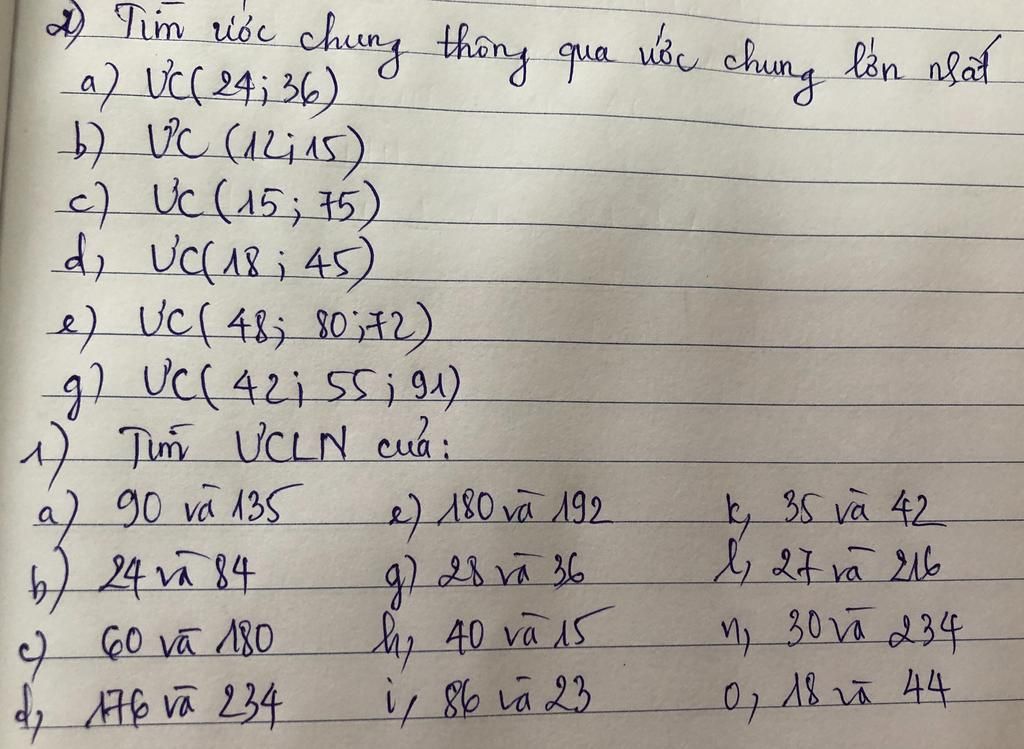 2) Tìm ước chung thông qua ước chung lớn nhất
a) ƯC(24; 36)
b) ƯC (12; 15)
c) ƯC (15; 75)
d, ƯC(18; 45)
e) ƯC( 48; 80; 72)
g) ƯC( 42; 55; 91)
1) Tìm ƯCLN của:
a) 90 và 135 e) 180 và 192 k, 35 và 42
b) 24 và 84 g) 28 và 36 l, 27 và 216
c) 60 và 180 h, 40 và 15 n, 30 và 234
d, 176 và 234 i, 86 và 23 o, 18 và 44